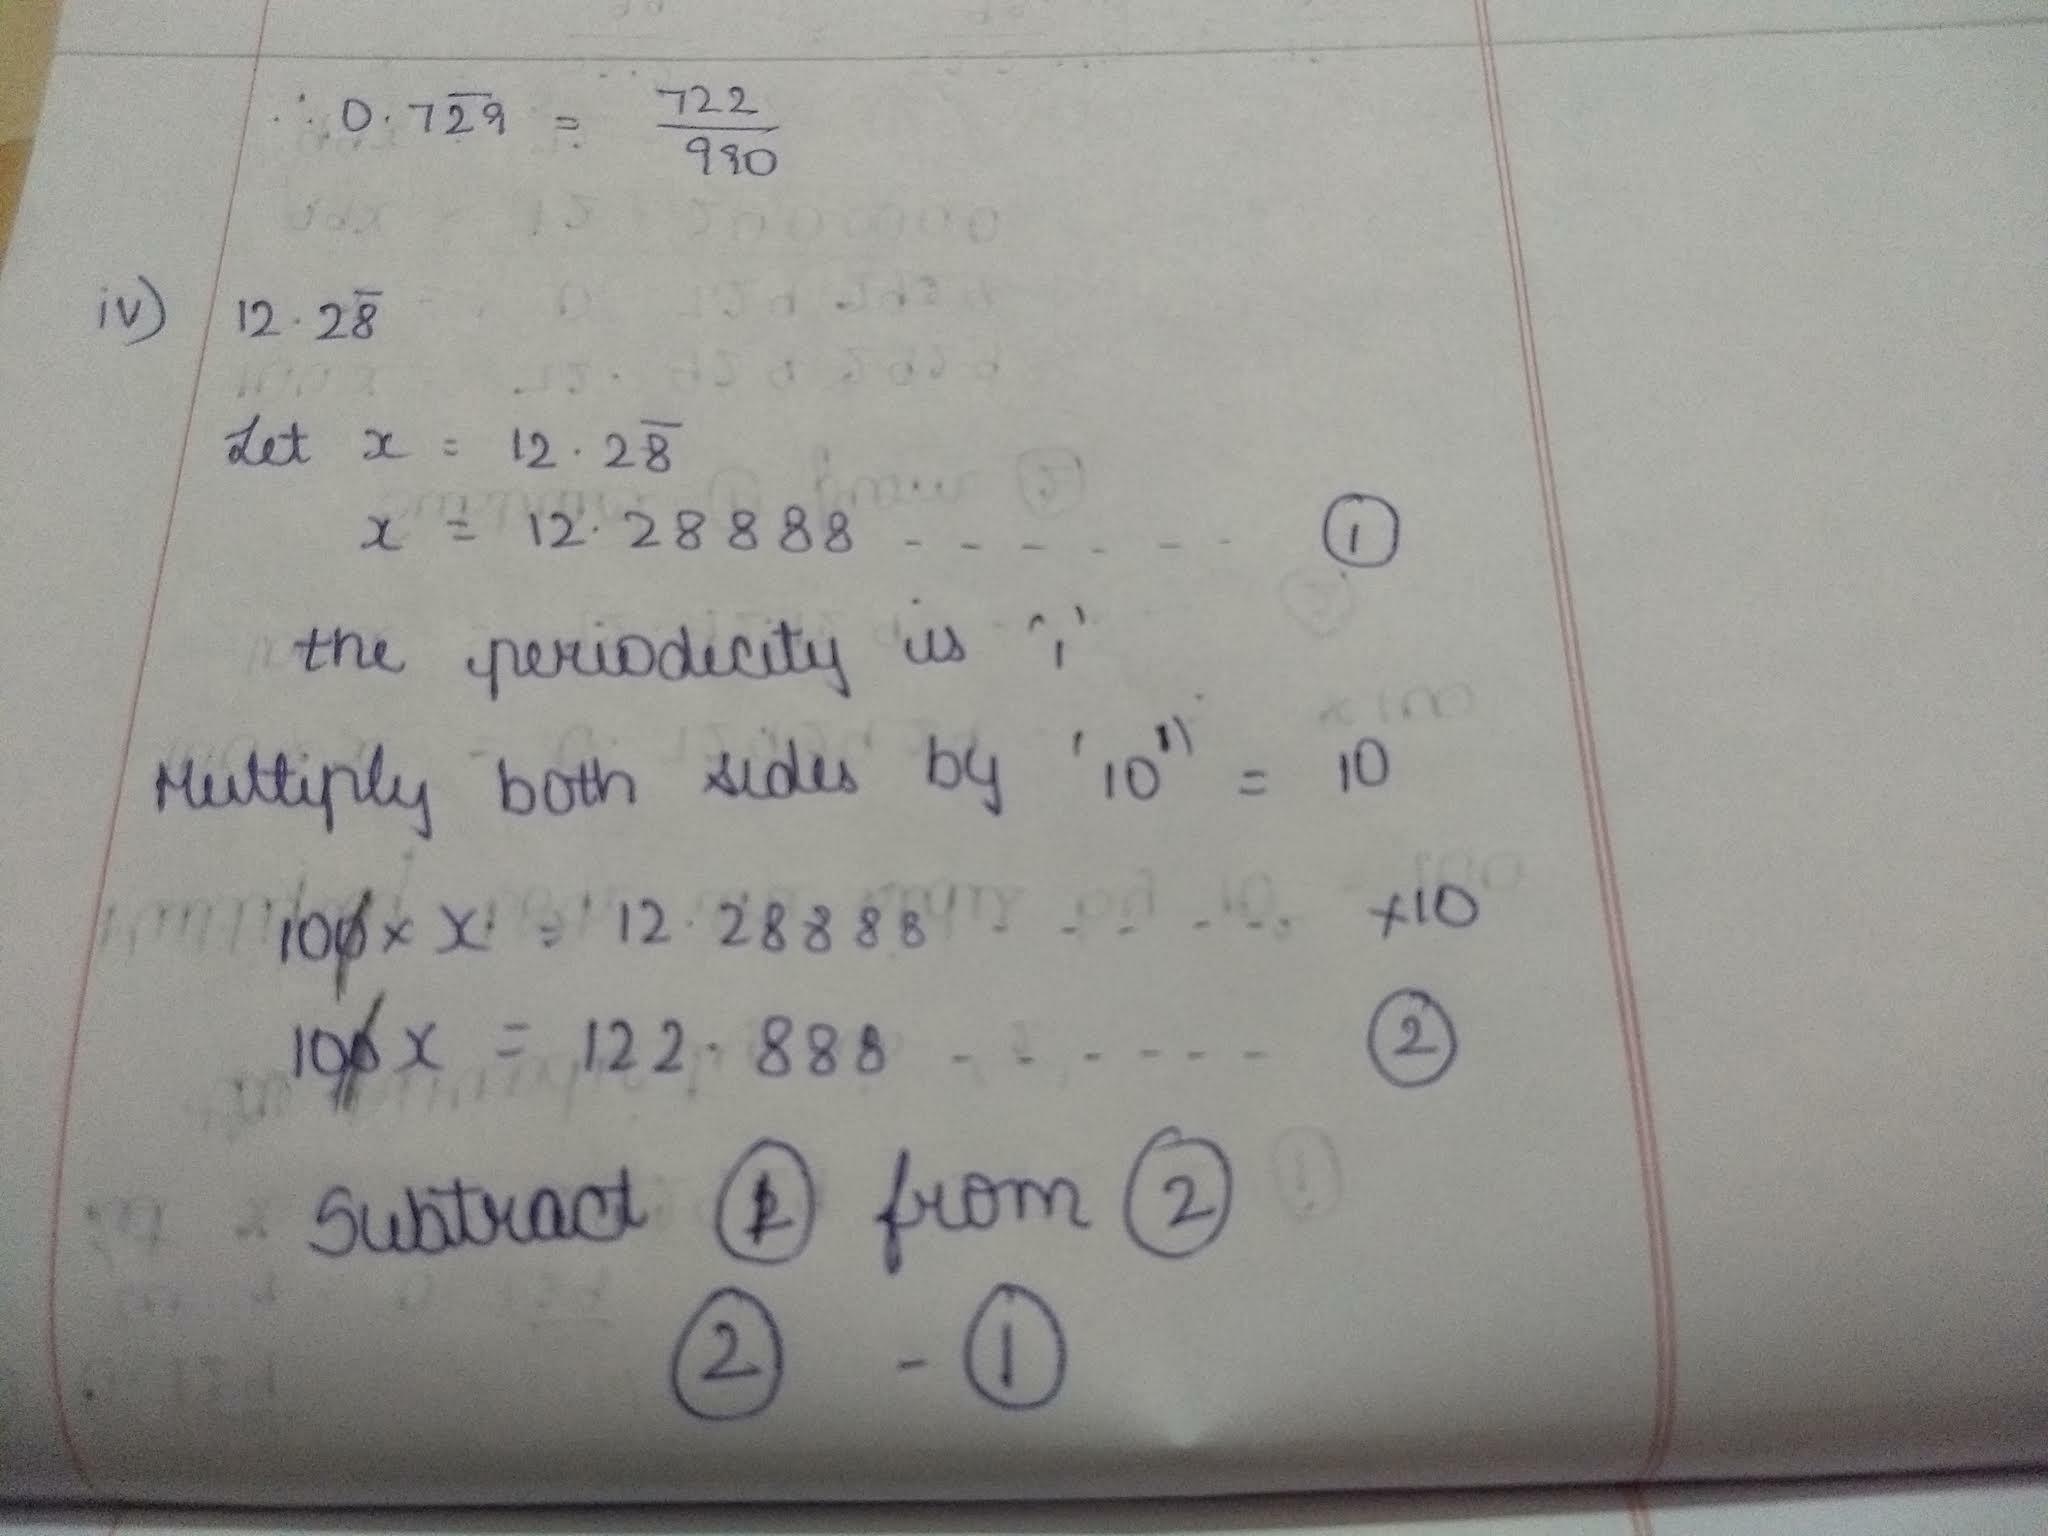 ∴ 0.72̅9̅ = 722/990
iv) 12.28̅
Let x = 12.28̅
x = 12.28888 - - - - - - ①
the periodicity is '1'
Multiply both sides by '10¹' = 10
10x x = 12.28888 - - - - - ×10
10x = 122.888 - - - - - - ②
Subtract ① from ②
② - ①